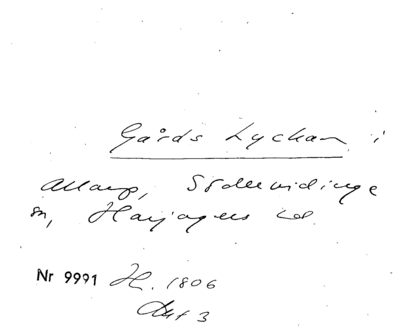 Gårds Lyckan i
Allarp, Södervidinge
sn, Harjagers hd
Nr 9991 H. 1806
Akt 3